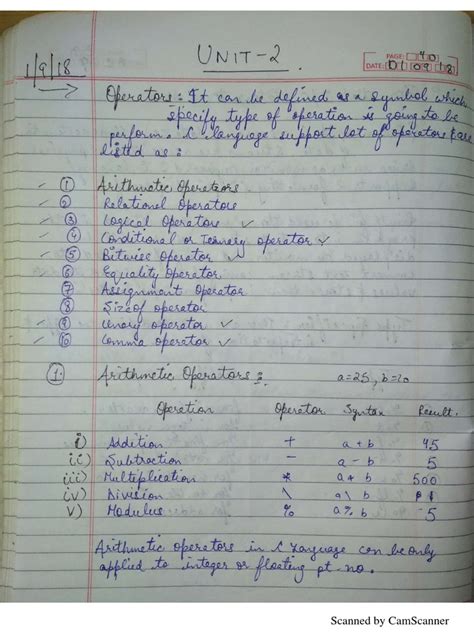 PAGE: 40
UNIT-2
1/9/18
DATE: 01 09 18
Operators: It can be defined as a symbol which
specify type of operation is going to be
perform. C language support lot of operators & are
listed as:
① Arithmetic Operators
② Relational Operators
③ Logical Operators ✓
④ Conditional or Ternary operator ✓
⑤ Bitwise Operator ✓
⑥ Equality Operator
⑦ Assignment Operator
⑧ Size of operator
⑨ Unary operator ✓
⑩ Comma operator ✓
① Arithmetic Operators: a=25, b=20
Operation Operator Syntax Result
i) Addition + a + b 45
ii) Subtraction - a - b 5
iii) Multiplication * a * b 500
iv) Division \ a \ b
v) Modulus % a % b 5
Arithmetic operators in C Language can be only
applied to integer or floating pt. no.
Scanned by CamScanner